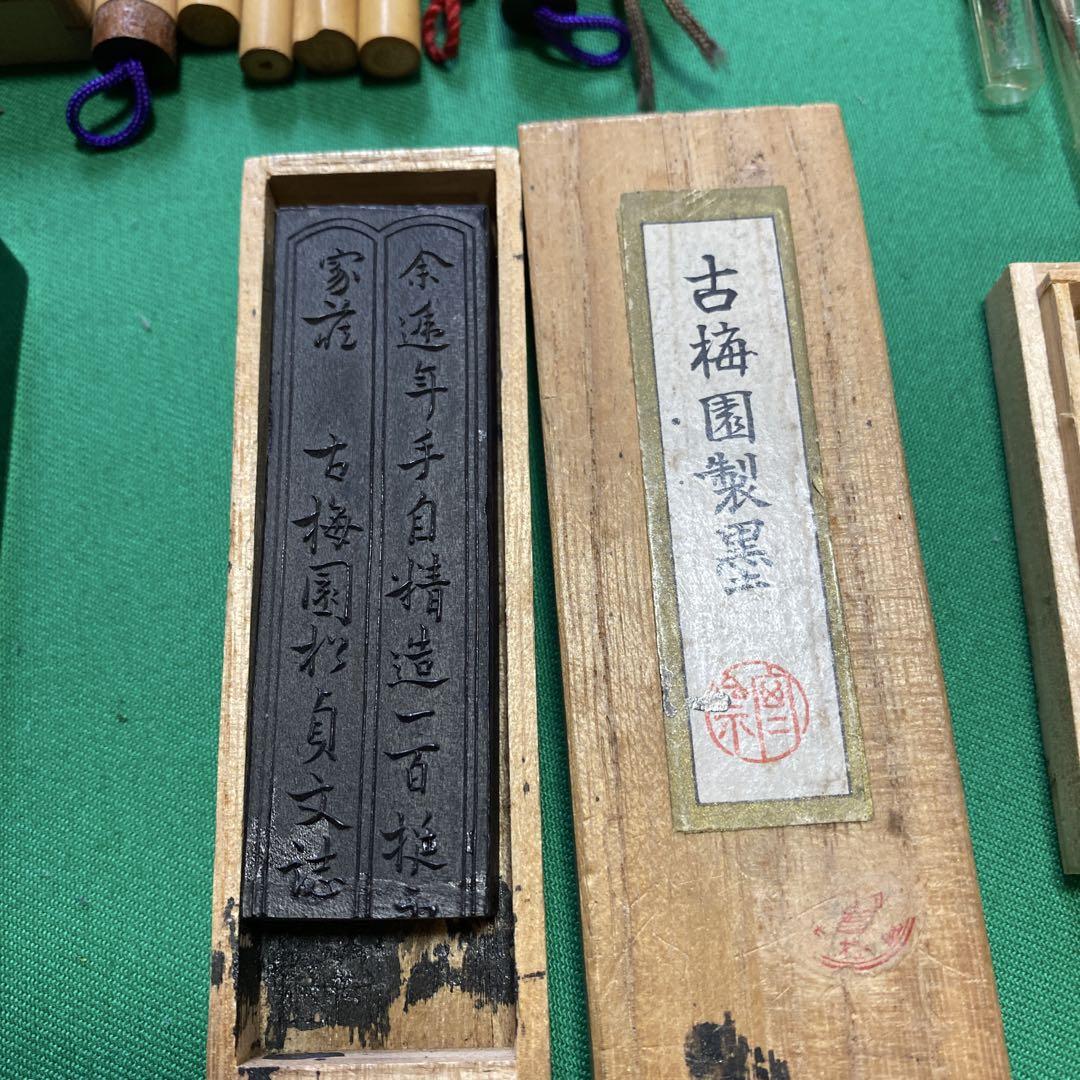 古梅園製墨
余遥年手自精造一百挺
家蔵 古梅園松貞文誌